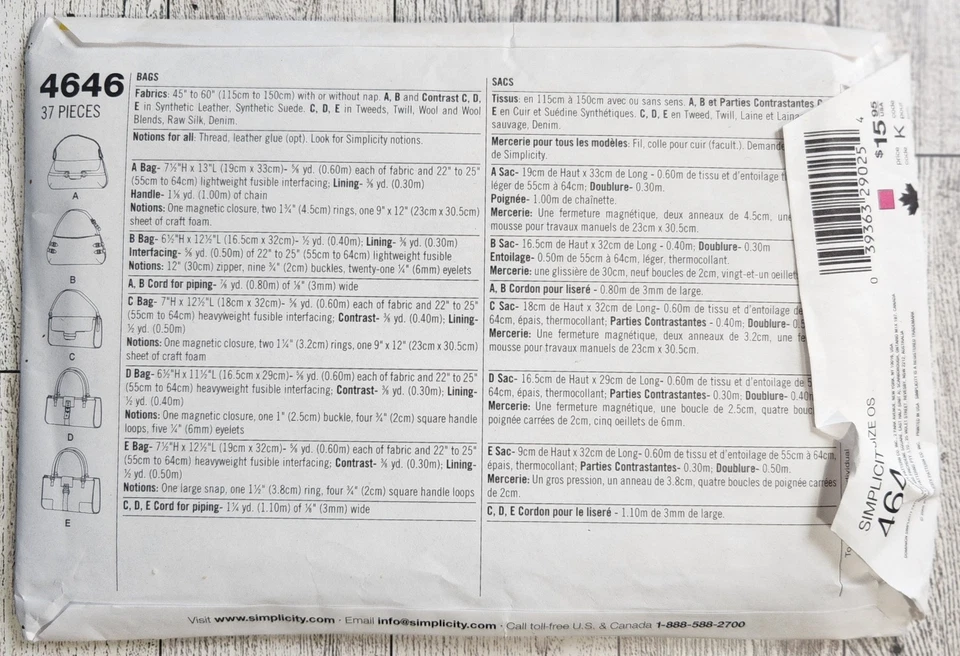 4646
37 PIECES
A
B
C
D
E
BAGS
Fabrics: 45" to 60" (115cm to 150cm) with or without nap. A, B and Contrast C, D,
E in Synthetic Leather, Synthetic Suede. C, D, E in Tweeds, Twill, Wool and Wool
Blends, Raw Silk, Denim.
Notions for all: Thread, leather glue (opt). Look for Simplicity notions.
A Bag- 7½"H x 13"L (19cm x 33cm)- ⅝ yd. (0.60m) each of fabric and 22" to 25"
(55cm to 64cm) lightweight fusible interfacing; Lining- ⅜ yd. (0.30m)
Handle- 1⅛ yd. (1.00m) of chain
Notions: One magnetic closure, two 1¾" (4.5cm) rings, one 9" x 12" (23cm x 30.5cm)
sheet of craft foam.
B Bag- 6½"H x 12½"L (16.5cm x 32cm)- ½ yd. (0.40m); Lining- ⅜ yd. (0.30m)
Interfacing- ⅝ yd. (0.50m) of 22" to 25" (55cm to 64cm) lightweight fusible
Notions: 12" (30cm) zipper, nine ¾" (2cm) buckles, twenty-one ¼" (6mm) eyelets
A, B Cord for piping- ⅞ yd. (0.80m) of ⅛" (3mm) wide
C Bag- 7"H x 12½"L (18cm x 32cm)- ⅝ yd. (0.60m) each of fabric and 22" to 25"
(55cm to 64cm) heavyweight fusible interfacing; Contrast- ⅜ yd. (0.40m); Lining-
½ yd. (0.50m)
Notions: One magnetic closure, two 1¼" (3.2cm) rings, one 9" x 12" (23cm x 30.5cm)
sheet of craft foam
D Bag- 6½"H x 11½"L (16.5cm x 29cm)- ⅝ yd. (0.60m) each of fabric and 22" to 25"
(55cm to 64cm) heavyweight fusible interfacing; Contrast- ⅜ yd. (0.30m); Lining-
½ yd. (0.40m)
Notions: One magnetic closure, one 1" (2.5cm) buckle, four ¾" (2cm) square handle
loops, five ¼" (6mm) eyelets
E Bag- 7½"H x 12½"L (19cm x 32cm)- ⅝ yd. (0.60m) each of fabric and 22" to 25"
(55cm to 64cm) heavyweight fusible interfacing; Contrast- ⅜ yd. (0.30m); Lining-
½ yd. (0.50m)
Notions: One large snap, one 1½" (3.8cm) ring, four ¾" (2cm) square handle loops
C, D, E Cord for piping- 1¼ yd. (1.10m) of ⅛" (3mm) wide
SACS
Tissus: en 115cm à 150cm avec ou sans sens. A, B et Parties Contrastantes
E en Cuir et Suédine Synthétiques. C, D, E en Tweed, Twill, Laine et
sauvage, Denim.
Mercerie pour tous les modèles: Fil, colle pour cuir (facult.).
de Simplicity.
A Sac- 19cm de Haut x 33cm de Long - 0.60m de tissu et d'entoilage
léger de 55cm à 64cm; Doublure- 0.30m.
Poignée- 1.00m de chaînette.
Mercerie: Une fermeture magnétique, deux anneaux de 4.5cm,
mousse pour travaux manuels de 23cm x 30.5cm.
B Sac- 16.5cm de Haut x 32cm de Long - 0.40m; Doublure- 0.30m
Entoilage- 0.50m de 55cm à 64cm, léger, thermocollant.
Mercerie: une glissière de 30cm, neuf boucles de 2cm, vingt-et-un
A, B Cordon pour liseré - 0.80m de 3mm de large.
C Sac- 18cm de Haut x 32cm de Long- 0.60m de tissu et d'entoilage de
64cm, épais, thermocollant; Parties Contrastantes - 0.40m; Doublure-
Mercerie: Une fermeture magnétique, deux anneaux de 3.2cm, une
mousse pour travaux manuels de 23cm x 30.5cm.
D Sac- 16.5cm de Haut x 29cm de Long- 0.60m de tissu et d'entoilage de
64cm, épais, thermocollant; Parties Contrastantes- 0.30m; Doublure-
Mercerie: Une fermeture magnétique, une boucle de 2.5cm, quatre
poignée carrées de 2cm, cinq oeillets de 6mm.
E Sac- 9cm de Haut x 32cm de Long- 0.60m de tissu et d'entoilage de 55cm à 64cm,
épais, thermocollant; Parties Contrastantes- 0.30m; Doublure- 0.50m.
Mercerie: Un gros pression, un anneau de 3.8cm, quatre boucles de poignée carrées
de 2cm.
C, D, E Cordon pour le liseré - 1.10m de 3mm de large.
0 39363 29025 4
$15.95 USA
price code K
SIMPLICITY SIZE OS
464
Visit www.simplicity.com · Email info@simplicity.com · Call toll-free U.S. & Canada 1-888-588-2700